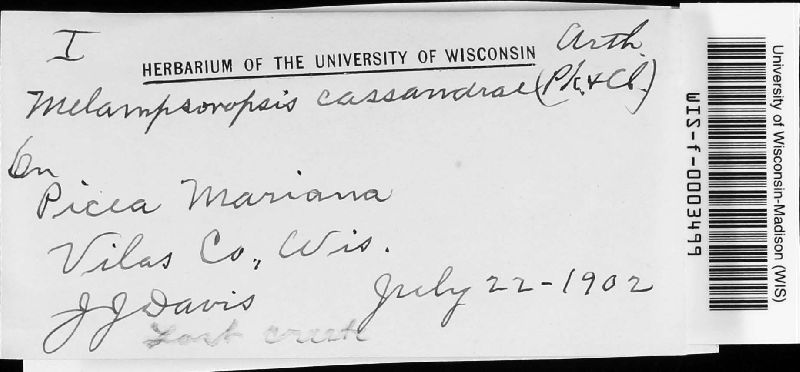 I
HERBARIUM OF THE UNIVERSITY OF WISCONSIN
Melampsoropsis cassandrae (Pk. & Cl.) Arth.
On
Picea Mariana
Vilas Co., Wis.
J J Davis July 22-1902
Lost Creek
WIS-f-0003499
University of Wisconsin-Madison (WIS)